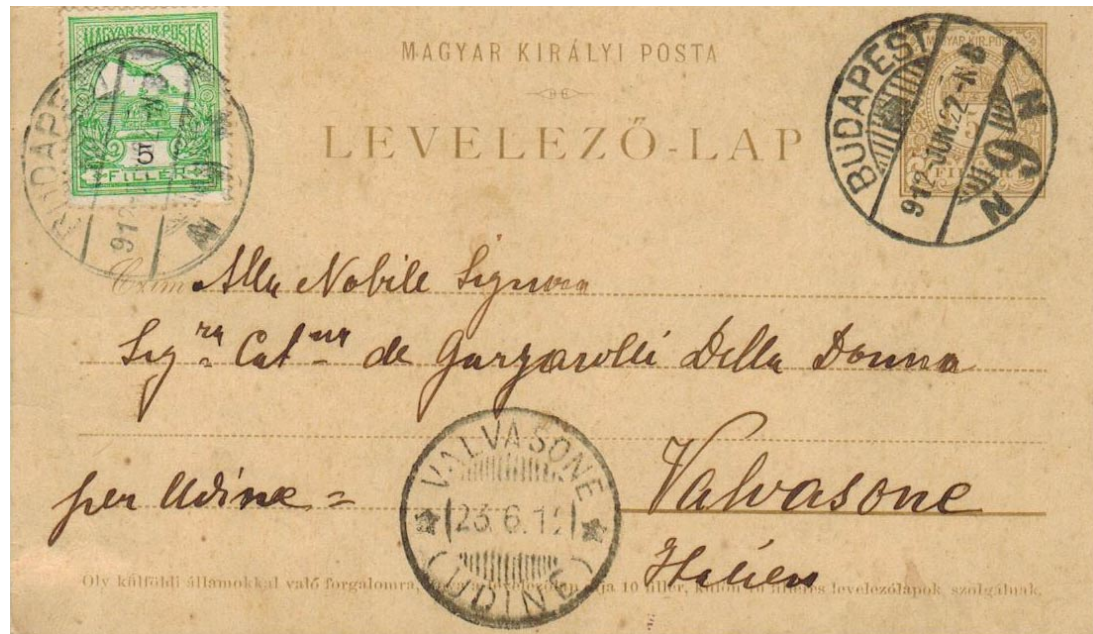 MAGYAR KIR. POSTA
5
FILLÉR
BUDAPEST
912
N
MAGYAR KIRÁLYI POSTA
LEVELEZŐ-LAP
MAGYAR KIR. POSTA
FILLÉR
BUDAPEST
912-JUN.22-N 8
N 9 N
Czim Alla Nobile Signora
Sig.ra Cat.na de Garzarolli Della Donna
per Udine =
Valvasone
Italien
VALVASONE
23.6.12
(UDINE)
Oly külföldi államokkal való forgalomra, 10 fillér, külön levelezőlapok szolgálnak.